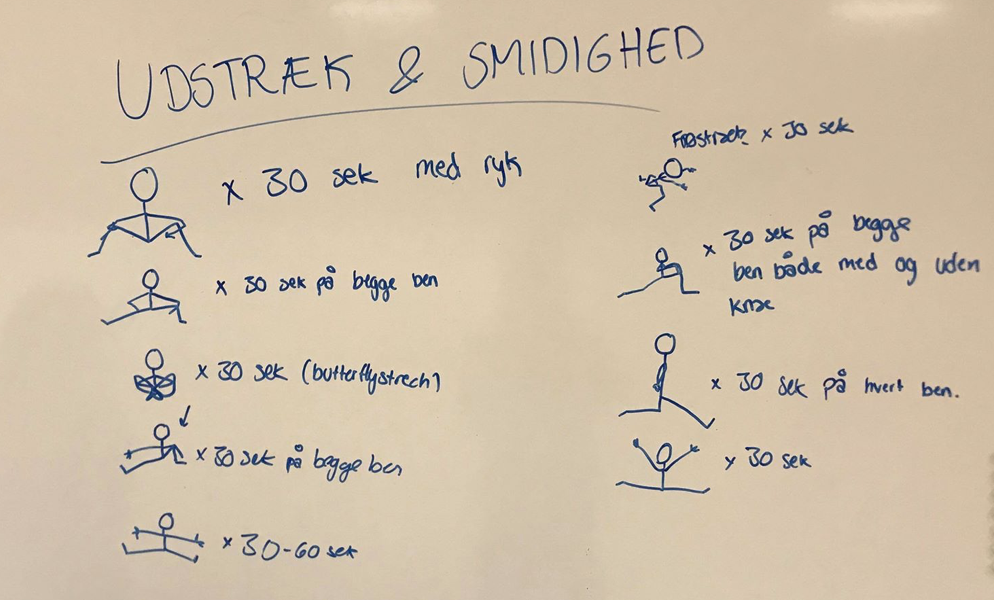 UDSTRÆK & SMIDIGHED
x 30 sek med ryk
x 30 sek på begge ben
x 30 sek (butterflystrech)
x 30 sek på begge ben
x 30-60 sek
Frøstræk x 30 sek
x 30 sek på begge
ben både med og uden
knæ
x 30 sek på hvert ben.
x 30 sek